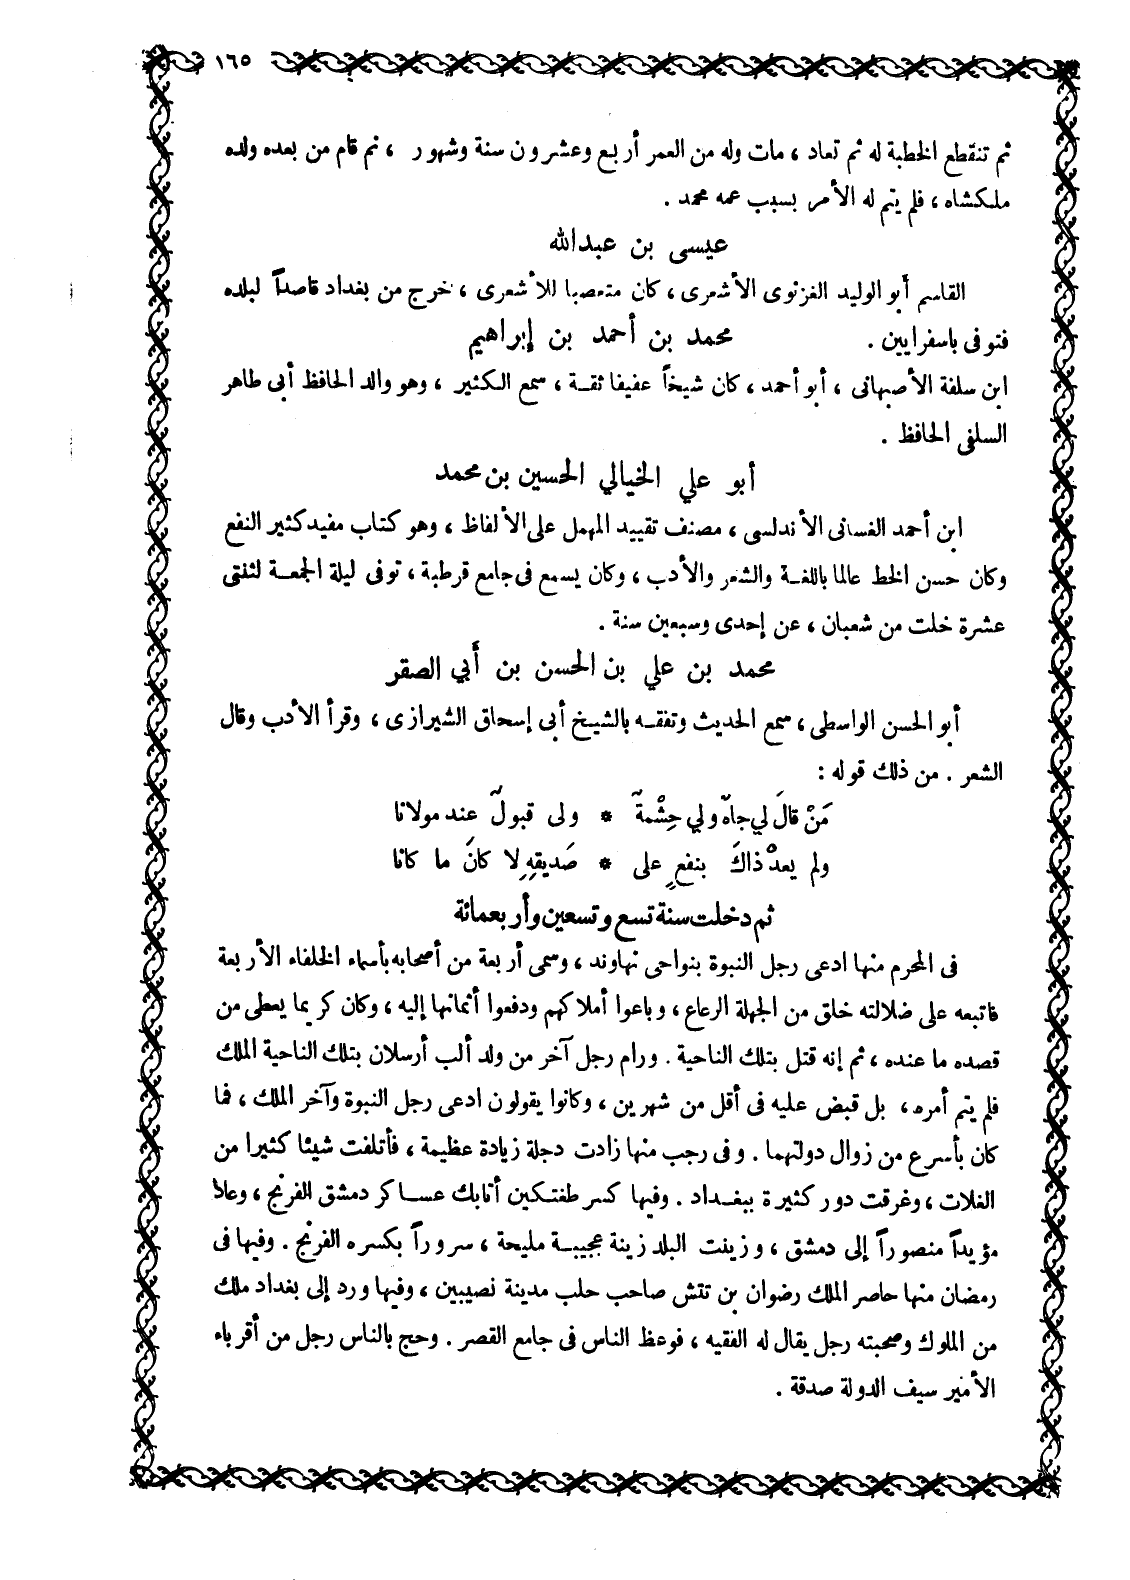 ١٦٥
ثم تنقطع الخطبة له ثم تعاد ، مات وله من العمر أربع وعشرون سنة وشهور ، ثم قام من بعده ولده
ملكشاه ، فلم يتم له الأمر بسبب عمه محمد .
عيسى بن عبدالله
القاسم أبو الوليد الغزنوى الأشعرى ، كان متعصبا للأشعرى ، خرج من بغداد قاصداً لبلده
فتوفى باسفرايين . محمد بن أحمد بن إبراهيم
ابن سلفة الأصبهانى ، أبو أحمد ، كان شيخاً عفيفا ثقة ، سمع الكثير ، وهو والد الحافظ أبى طاهر
السلفى الحافظ .
أبو علي الخيالي الحسين بن محمد
ابن أحمد الغسانى الأندلسى ، مصنف تقييد المهمل على الألفاظ ، وهو كتاب مفيد كثير النفع
وكان حسن الخط عالما باللغة والشعر والأدب ، وكان يسمع فى جامع قرطبة ، توفى ليلة الجمعة لثنتى
عشرة خلت من شعبان ، عن إحدى وسبعين سنة .
محمد بن علي بن الحسن بن أبي الصقر
أبو الحسن الواسطى ، سمع الحديث وتفقه بالشيخ أبى إسحاق الشيرازى ، وقرأ الأدب وقال
الشعر . من ذلك قوله :
مَنْ قالَ لي جاهٌ ولي حِشْمةٌ * ولى قبولٌ عند مولانا
ولم يعدْ ذاكَ بنفعٍ على * صَديقِهِ لا كانَ ما كانا
ثم دخلت سنة تسع وتسعين وأربعمائة
فى المحرم منها ادعى رجل النبوة بنواحى نهاوند ، وسمى أربعة من أصحابه بأسماء الخلفاء الأربعة
فاتبعه على ضلالته خلق من الجهلة الرعاع ، وباعوا أملاكهم ودفعوا أثمانها إليه ، وكان كريما يعطى من
قصده ما عنده ، ثم إنه قتل بتلك الناحية . ورام رجل آخر من ولد ألب أرسلان بتلك الناحية الملك
فلم يتم أمره ، بل قبض عليه فى أقل من شهرين ، وكانوا يقولون ادعى رجل النبوة وآخر الملك ، فما
كان بأسرع من زوال دولتهما . وفى رجب منها زادت دجلة زيادة عظيمة ، فأتلفت شيئا كثيرا من
الغلات ، وغرقت دور كثيرة ببغداد . وفيها كسر طغتكين أتابك عساكر دمشق الفرنج ، وعاد
مؤيداً منصوراً إلى دمشق ، وزينت البلد زينة عجيبة مليحة ، سروراً بكسره الفرنج . وفيها فى
رمضان منها حاصر الملك رضوان بن تتش صاحب حلب مدينة نصيبين ، وفيها ورد إلى بغداد ملك
من الملوك وصحبته رجل يقال له الفقيه ، فوعظ الناس فى جامع القصر . وحج بالناس رجل من أقرباء
الأمير سيف الدولة صدقة .